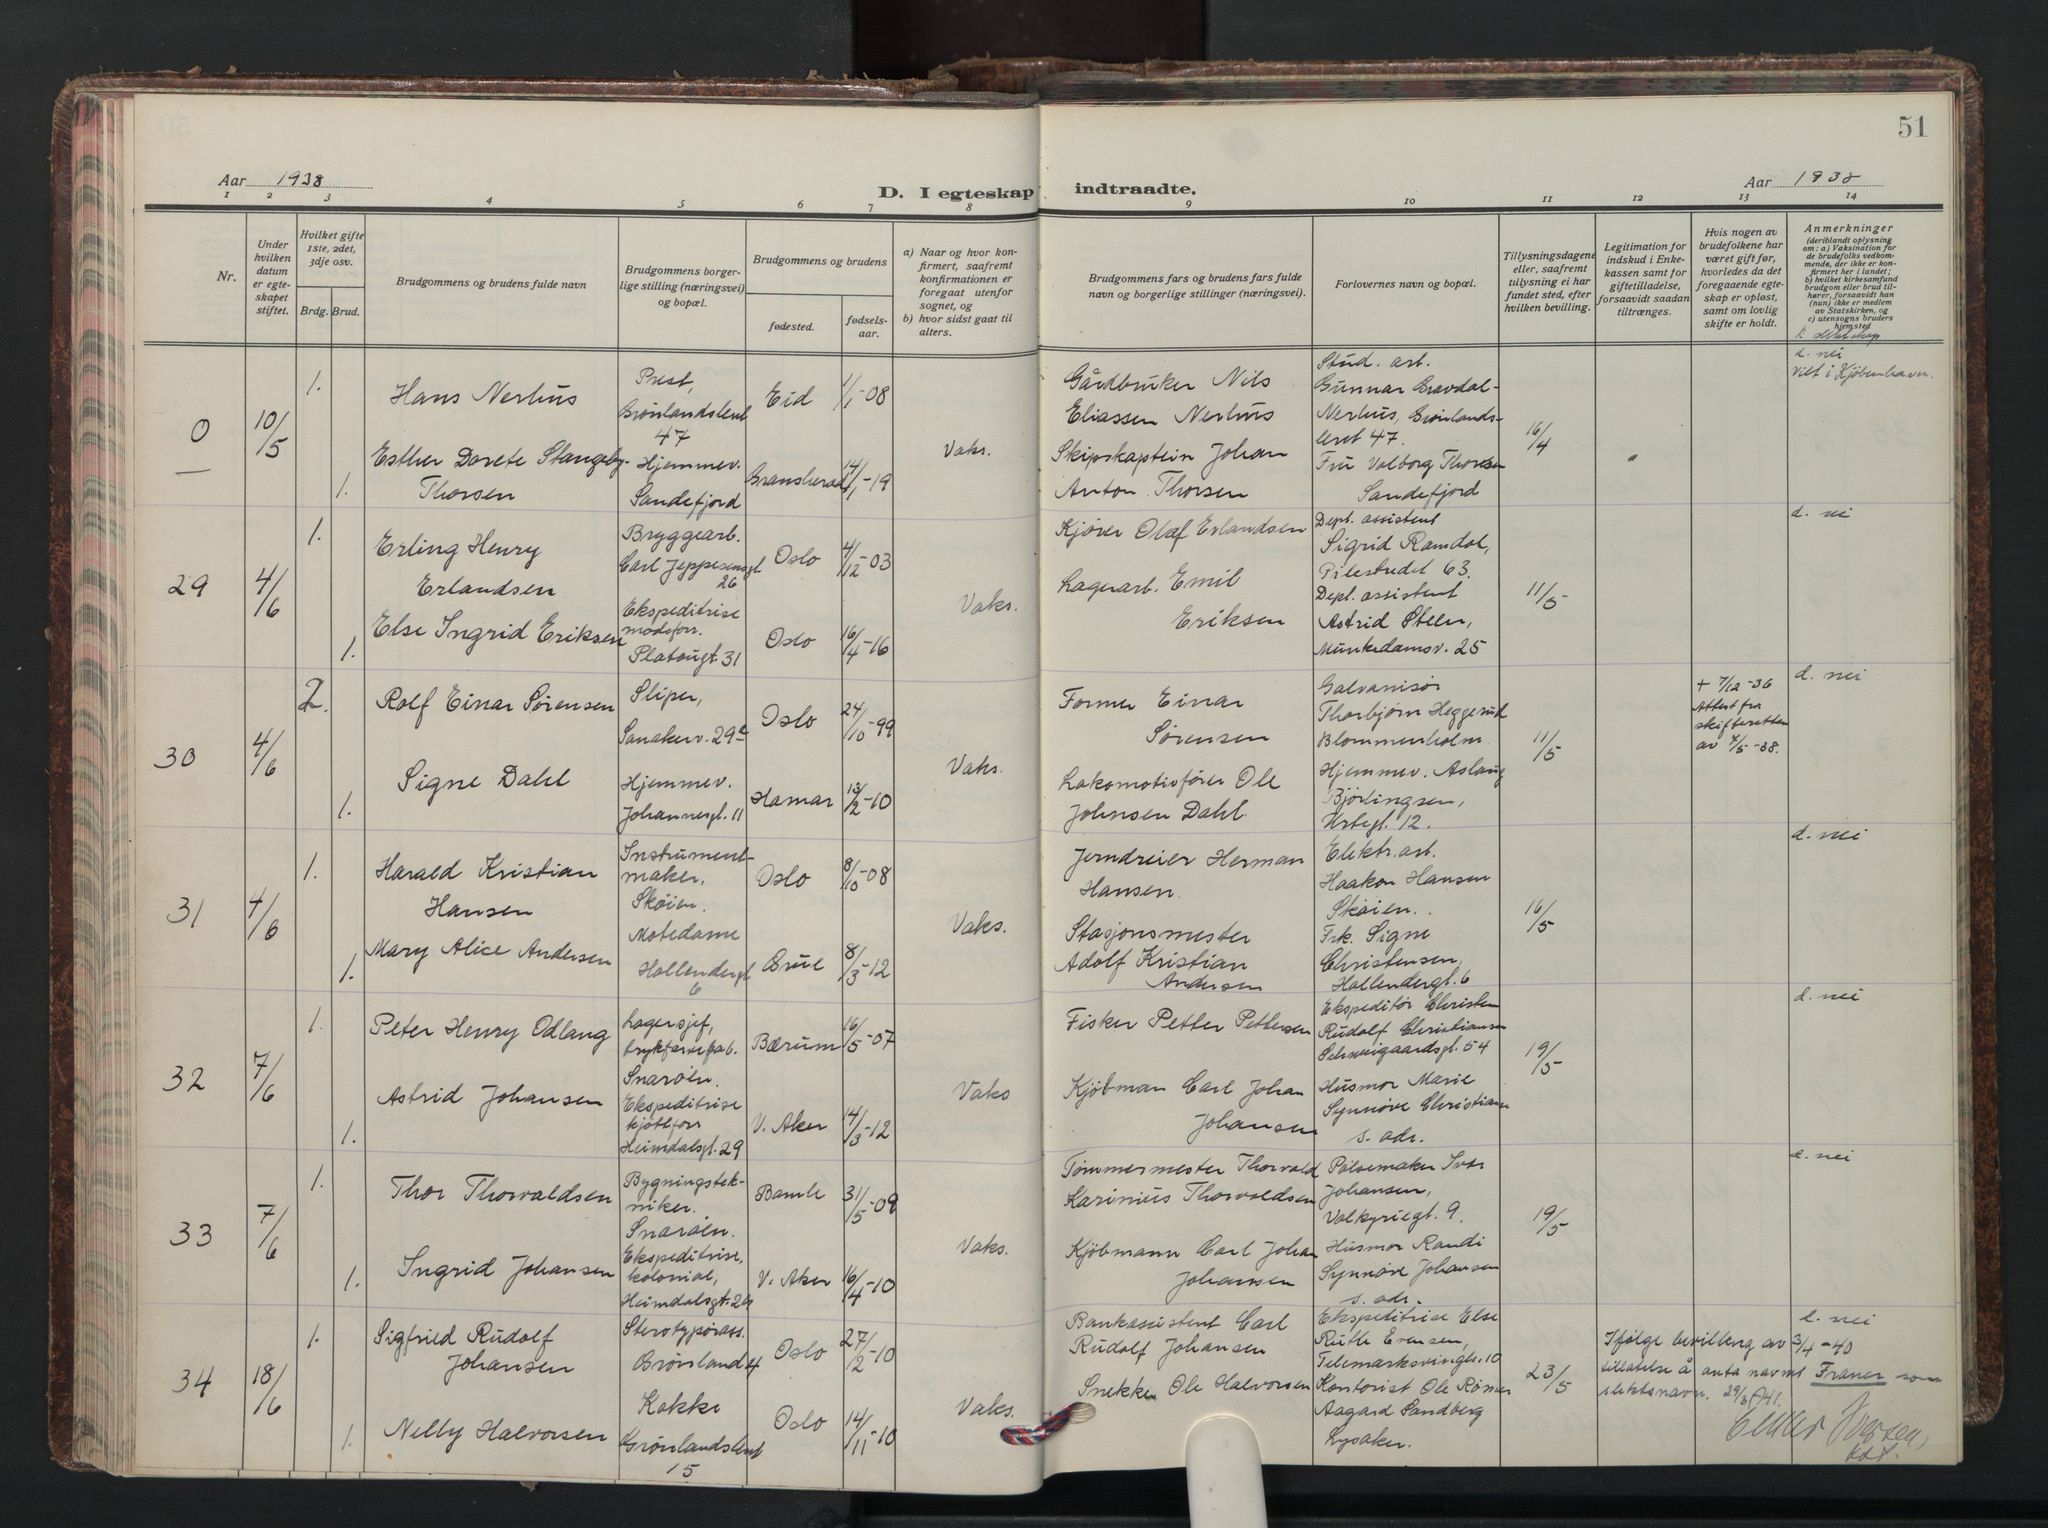 51
Aar 1938
D. I egteskap indtraadte.
Aar 1938
1 2 3 4 5 6 7 8 9 10 11 12 13 14
Nr.
Under
hvilken
datum
er egte-
skapet
stiftet.
Hvilket gifte
1ste, 2det,
3dje osv.
Brdg. Brud.
Brudgommens og brudens fulde navn
Brudgommens borger-
lige stilling (næringsvei)
og bopæl.
Brudgommens og brudens
fødested.
fødsels-
aar.
a) Naar og hvor kon-
firmert, saafremt
konfirmationen er
foregaat utenfor
sognet, og
b) hvor sidst gaat til
alters.
Brudgommens fars og brudens fars fulde
navn og borgerlige stillinger (næringsvei).
Forlovernes navn og bopæl.
Tillysningsdagene
eller, saafremt
tillysning ei har
fundet sted, efter
hvilken bevilling.
Legitimation for
indskud i Enke-
kassen samt for
giftetilladelse,
forsaavidt saadan
tiltrænges.
Hvis nogen av
brudefolkene har
været gift før,
hvorledes da det
foregaaende egte-
skap er opløst,
samt om lovlig
skifte er holdt.
Anmerkninger
(deriblandt oplysning
om: a) Vaksination for
de brudefolks vedkom-
mende, der ikke er kon-
firmert her i landet;
b) hvilket kirkesamfund
brudgom eller brud til-
hører, forsaavidt han
(hun) ikke er medlem
av Statskirken, og
c) utensogns bruders
hjemsted
0
10/5
1.
Hans Nerhus
Prest,
Grønlandsleret
47
Eid
1/1-08
1.
Esther Dorete Stangeby-
Thorsen
Hjemmev.
Sandefjord
Gransherad
14/1-19
Vaks.
Gårdbruker Nils
Eliassen Nerhus
Skipskaptein Johan
Anton Thorsen
Stud. art.
Gunnar Gravdal-
Nerhus, Grønlands-
leret 47.
Fru Valborg Thorsen
Sandefjord
16/4
d. nei
Viet i Kjøbenhavn.
29
4/6
1.
Erling Henry
Erlandsen
Bryggearb.
Carl Jeppesensgt.
26
Oslo
4/12-03
1.
Else Ingrid Eriksen
Ekspeditrise
modeforr.
Platougt. 31
Oslo
16/4-16
Vaks.
Kjører Olaf Erlandsen
Lagerarb. Emil
Eriksen
Dept. assistent
Sigrid Ramdal,
Pilestredet 63.
Dept. assistent
Astrid Steen,
Munkedamsv. 25
11/5
d. nei
30
4/6
2.
Rolf Einar Sørensen
Sliper,
Sanakerv. 29c
Oslo
24/10-99
1.
Signe Dahl
Hjemmev.
Johannesgt. 11
Hamar
13/2-10
Vaks.
Former Einar
Sørensen
Lokomotivfører Ole
Johnsen Dahl
Galvanisør
Thorbjørn Heggerud
Blommenholm.
Hjemmev. Aslaug
Bjørlingsen,
Urtegt. 12.
11/5
+ 7/12-36
Attest fra
skifteretten
av 4/5-38.
d. nei
31
4/6
1.
Harald Kristian
Hansen
Instrument-
maker,
Skøien.
Oslo
8/10-08
1.
Mary Alice Andersen
Motedame
Hollendergt
6
Grue
8/3-12
Vaks.
Jerndreier Herman
Hansen.
Stasjonsmester
Adolf Kristian
Andersen
Elektr.arb.
Haakon Hansen
Skøien.
Frk. Signe
Christensen,
Hollendergt. 6
16/5
d. nei
32
7/6
1.
Peter Henry Odlang
Lagersjef,
trykfarvefab.
Snarøen.
Bærum
16/5-07
1.
Astrid Johansen
Ekspeditrise
kjøttforr
Heimdalsgt. 29
V. Aker
14/3-12
Vaks
Fisker Petter Pettersen
Kjøbman Carl Johan
Johansen
Ekspeditør Christen
Rudolf Christiansen
Schweigaardsgt. 54
Husmor Marie
Synnøve Christiansen
s. adr.
19/5
d. nei
33
7/6
1.
Thor Thorvaldsen
Bygningstek-
niker.
Snarøen.
Bamle
31/5-09
1.
Ingrid Johansen
Ekspeditrise,
kolonial,
Heimdalsgt. 29
V. Aker
16/4-10
Vaks.
Tømmermester Thorvald
Karinius Thorvaldsen
Kjøbmann Carl Johan
Johansen
Pølsemaker Ivar
Johansen,
Valkyriegt. 9.
Husmor Randi
Synnøve Johansen
s. adr.
19/5
d. nei
34
18/6
1.
Sigfried Rudolf
Johansen
Sterotypørass.
Grønland 4
Oslo
27/2-10
1.
Nelly Halvorsen
Kokke
Grønlandsleret
15
Oslo
14/11-10
Vaks.
Bankassistent Carl
Rudolf Johansen
Snekker Ole Halvorsen
Ekspeditrise Else
Ruth Evensen,
Telemarksvingen 10
Kontorist Ole Rømer
Aagard Sandberg
Lysaker.
23/5
d. nei
Ifølge bevilling av 3/4-40
tillatelse å anta navnet Franer som
slektsnavn.